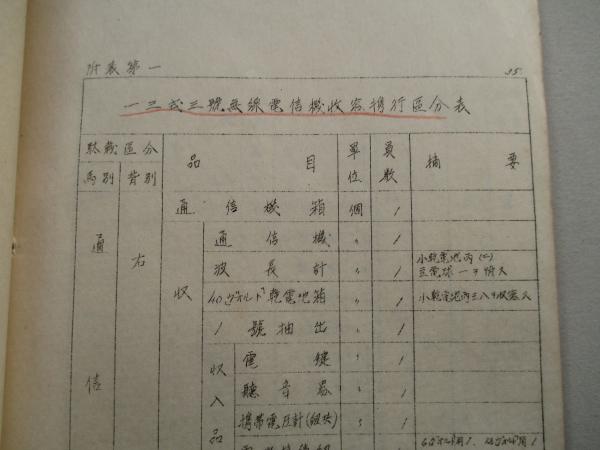 附表第一
35
一三式三號無線電信機收容携行區分表
駄載區分 品目 單位 員數 摘要
馬別 背別
通信機箱 個 1
通信機 〃 1
波長計 〃 1 小乾電池內(二)
豆電球一ヲ
40ヴオルト乾電池箱 〃 1 小乾電池內三八ヲ收容ス
1號抽出 〃 1
通信
右
收
收入品
電鍵 〃 1
聽音器 〃 1
携帶電圧計 〃 1